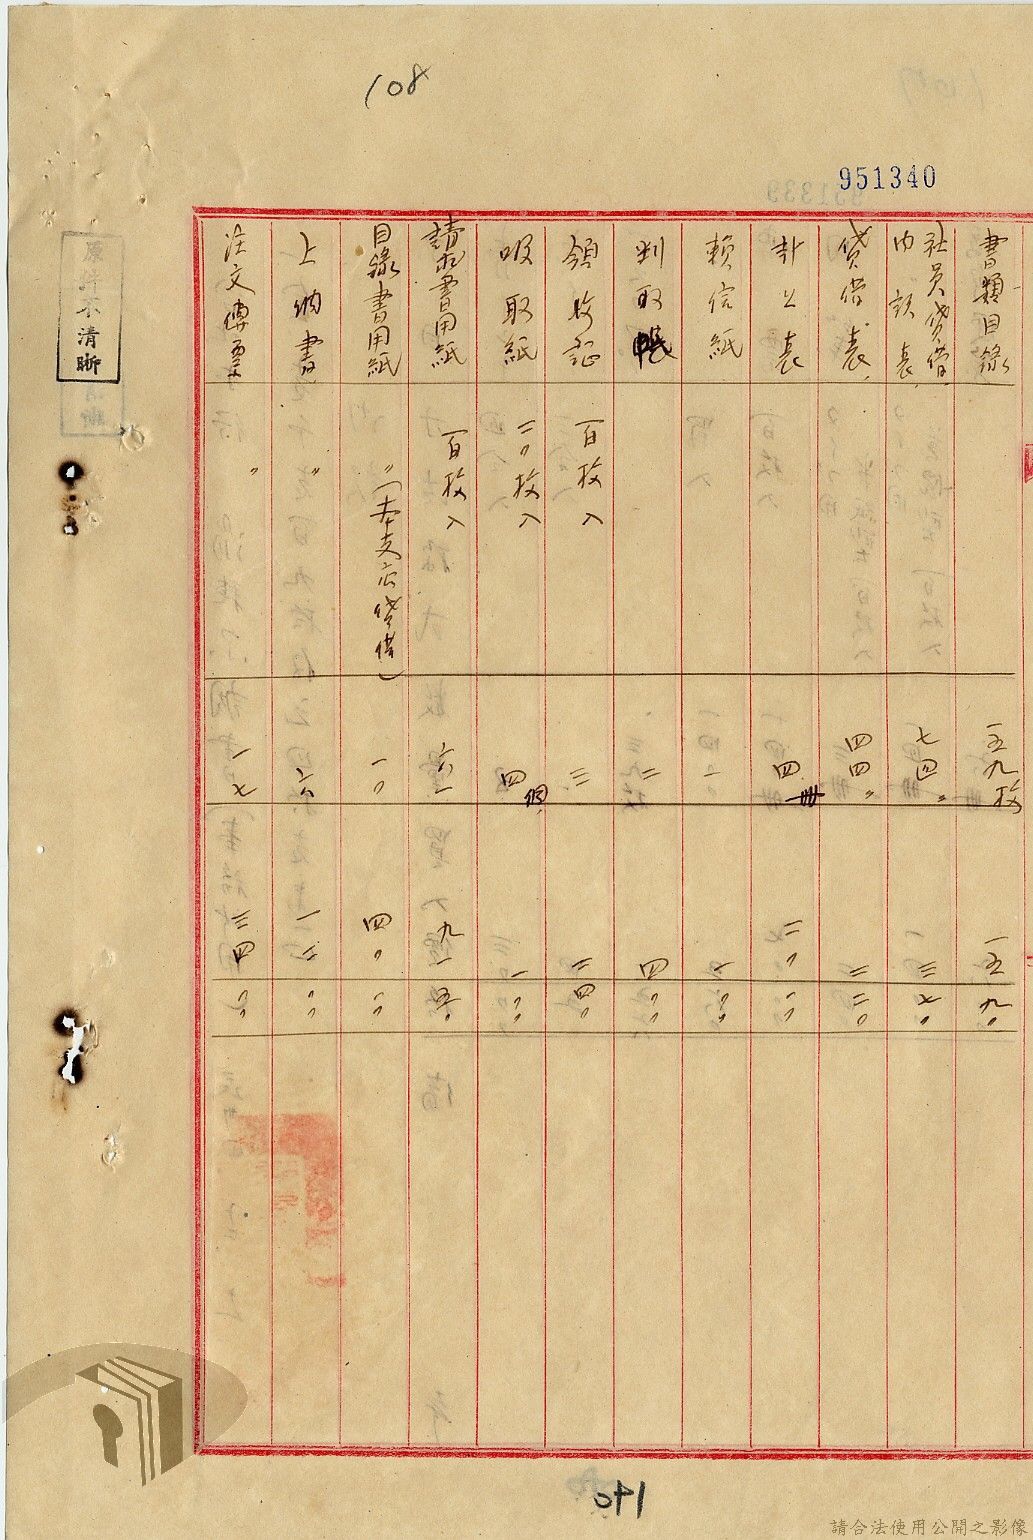 108
951340
書類目錄 一五九枚 一五九〇
社員貸借內訳表 七四〃 三七〇
貸借表 四四〃 二二〇
卦上表 四冊 二〇〇〇
頼信紙 一 一〇〇
判取帳 二 四〇〇
領收証 百枚入 三 二四〇
吸取紙 二〇枚入 四個 一〇〇
請求書用紙 百枚入 六一 九一五〇
目錄書用紙 〃(本支店貸借) 一〇 四〇〇〇
上納書 〃 六 一二〇〇
注文傳票 〃 一七 三四〇〇
原件不清晰
140
請合法使用公開之影像